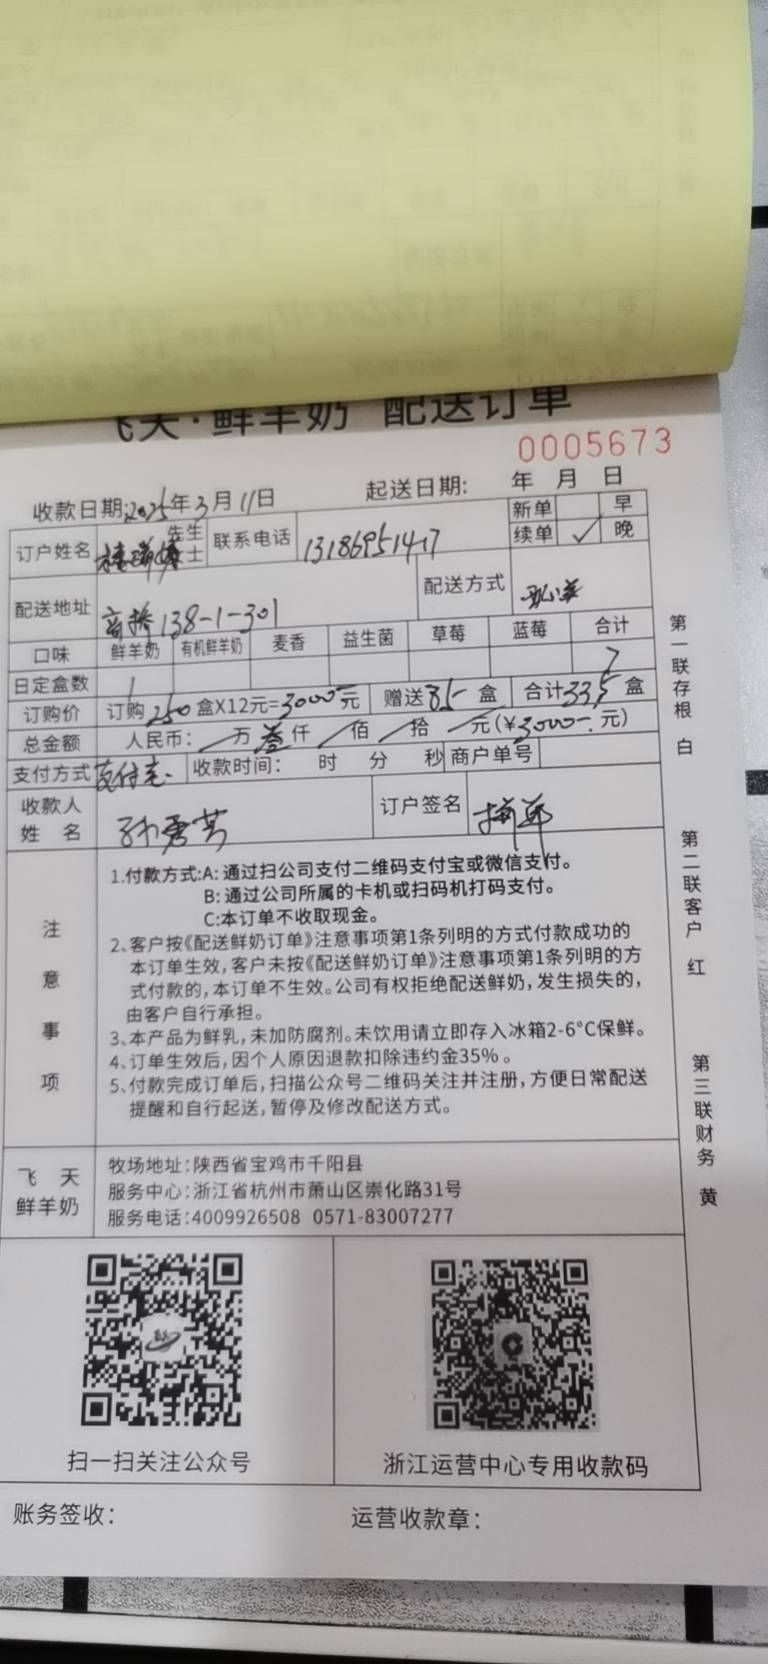 飞天·鲜羊奶 配送订单
0005673
收款日期:2025年3月11日 起送日期: 年 月 日
订户姓名 先生 女士 联系电话 13186951417 新单 早
续单 ✓ 晚
配送地址 138-1-301 配送方式
口味 鲜羊奶 有机鲜羊奶 麦香 益生菌 草莓 蓝莓 合计
日定盒数 1 7
订购价 订购250盒X12元=3000元 赠送85盒 合计335盒
总金额 人民币: 万叁仟 佰 拾 元(¥3000-元)
支付方式 支付宝 收款时间: 时 分 秒 商户单号
收款人姓名 孙秀芳 订户签名
注意事项
1.付款方式:A:通过扫公司支付二维码支付宝或微信支付。
B:通过公司所属的卡机或扫码机打码支付。
C:本订单不收取现金。
2、客户按《配送鲜奶订单》注意事项第1条列明的方式付款成功的
本订单生效,客户未按《配送鲜奶订单》注意事项第1条列明的方
式付款的,本订单不生效。公司有权拒绝配送鲜奶,发生损失的,
由客户自行承担。
3、本产品为鲜乳,未加防腐剂。未饮用请立即存入冰箱2-6°C保鲜。
4、订单生效后,因个人原因退款扣除违约金35%。
5、付款完成订单后,扫描公众号二维码关注并注册,方便日常配送
提醒和自行起送,暂停及修改配送方式。
飞天鲜羊奶
牧场地址:陕西省宝鸡市千阳县
服务中心:浙江省杭州市萧山区崇化路31号
服务电话:4009926508 0571-83007277
扫一扫关注公众号 浙江运营中心专用收款码
账务签收: 运营收款章:
第一联存根 白
第二联客户 红
第三联财务 黄